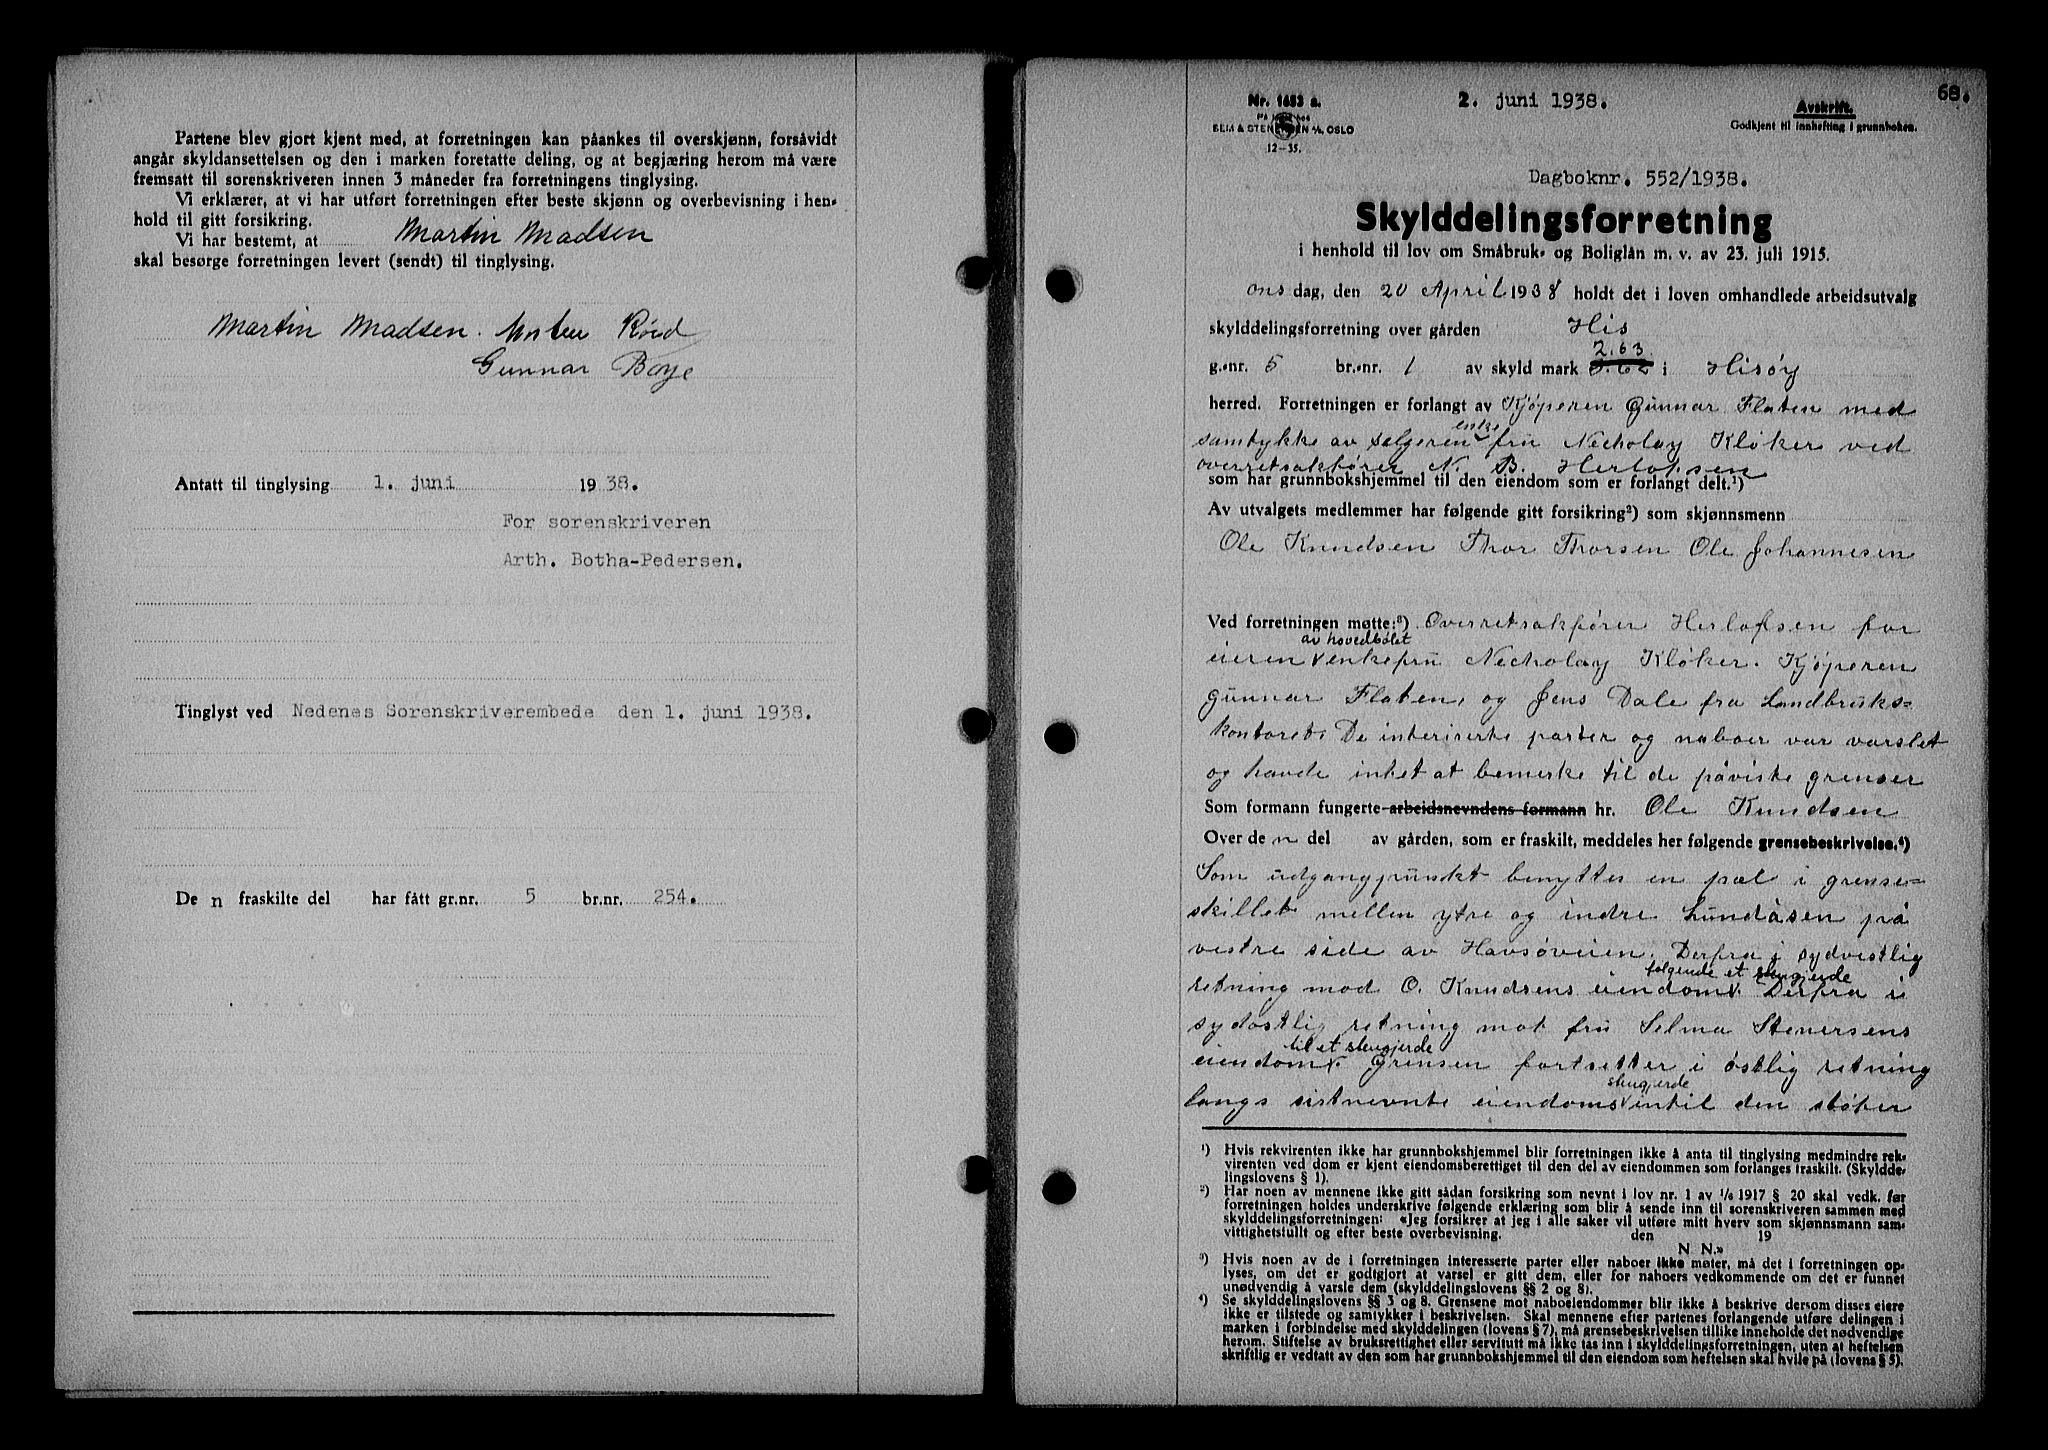 Partene blev gjort kjent med, at forretningen kan påankes til overskjønn, forsåvidt
angår skyldansettelsen og den i marken foretatte deling, og at begjæring herom må være
fremsatt til sorenskriveren innen 3 måneder fra forretningens tinglysing.
Vi erklærer, at vi har utført forretningen efter beste skjønn og overbevisning i hen-
hold til gitt forsikring.
Vi har bestemt, at Martin Madsen
skal besørge forretningen levert (sendt) til tinglysing.
Martin Madsen. Anten Röed
Gunnar Boye
Antatt til tinglysing 1. juni 1938.
For sorenskriveren
Arth. Botha-Pedersen.
Tinglyst ved Nedenes Sorenskriverembede den 1. juni 1938.
De n fraskilte del har fått gr.nr. 5 br.nr. 254.
68.
Nr. 1653 a. 2. juni 1938. Avskrift.
Godkjent til innhefting i grunnboken.
SEM & STENERSEN A/S, OSLO
12-35.
Dagboknr. 552/1938.
Skylddelingsforretning
i henhold til lov om Småbruk- og Boliglån m. v. av 23. juli 1915.
onsdag, den 20 April 1938 holdt det i loven omhandlede arbeidsutvalg
skylddelingsforretning over gården His
2.63
g.-nr. 5 br.-nr. 1 av skyld mark i Hisøy
herred. Forretningen er forlangt av Kjøperen Gunnar Flaten med
samtykke av selgeren enke fru Nicholay Kløker ved
overretsakfører N. B. Herlofsen
som har grunnbokshjemmel til den eiendom som er forlangt delt.¹)
Av utvalgets medlemmer har følgende gitt forsikring²) som skjønnsmenn
Ole Knudsen Thor Thorsen Ole Johannesen
Ved forretningen møtte:³) Overretsakfører Herlofsen for
av hovedbølet
eieren v enkefru Nicholay Kløker. Kjøperen
Gunnar Flaten, og Jens Dale fra Landbruks=
kontoret. De interiserte parter og naboer var varslet
og havde intet at bemerke til de påviste grenser
Som formann fungerte arbeidsnevndens formann hr. Ole Knudsen
Over de n del av gården, som er fraskilt, meddeles her følgende grensebeskrivelse.⁴)
Som udgangpunkt benyttes en pæl i grense=
skillet mellen ytre og indre Lundåsen på
vestre side av Havsøveien. Derfra i sydvestlig
følgende et stengjerde
retning mod O. Knudsens eiendom v. Derfra i
sydostlig retning mot fru Selma Stenersens
til et stengjerde
eiendom v. Grensen fortsetter i östlig retning
stengjerde
langs sistnevnte eiendoms v intil den støter
¹) Hvis rekvirenten ikke har grunnbokshjemmel blir forretningen ikke å anta til tinglysing medmindre rek-
virenten ved dom er kjent eiendomsberettiget til den del av eiendommen som forlanges fraskilt. (Skyldde-
lingslovens § 1).
²) Har noen av mennene ikke gitt sådan forsikring som nevnt i lov nr. 1 av 1/6 1917 § 20 skal vedk. før
forretningen holdes underskrive følgende erklæring som blir å sende inn til sorenskriveren sammen med
skylddelingsforretningen: «Jeg forsikrer at jeg i alle saker vil utføre mitt hverv som skjønnsmann sam-
vittighetsfullt og efter beste overbevisning. den 19
N. N.»
³) Hvis noen av de i forretningen interesserte parter eller naboer ikke møter, må det i forretningen op-
lyses, om det er godtgjort at varsel er gitt dem, eller for naboers vedkommende om det er funnet
unødvendig å varsle dem (skylddelingslovens §§ 2 og 8).
⁴) Se skylddelingslovens §§ 3 og 8. Grensene mot naboeiendommer blir ikke å beskrive dersom disses eiere
ikke er tilstede og samtykker i beskrivelsen. Skal mennene efter partenes forlangende utføre delingen i
marken i forbindelse med skylddelingen (lovens § 7), må grensebeskrivelsen tillike inneholde det nødvendige
herom. Stiftelse av bruksrettighet eller servitutt må ikke tas inn i skylddelingsforretningen, uten at heftelsen
skriftlig er vedtatt av den som har grunnbokshjemmel til den eiendom som heftelsen skal hvile på (lovens § 5).